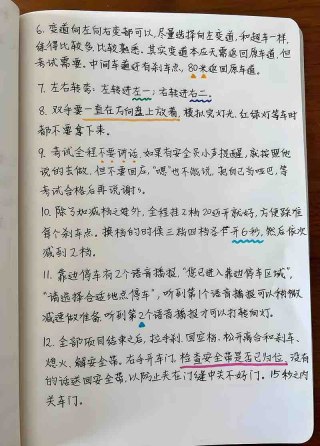 6. 变道向左向右变都可以，尽量选择向左变道，和超车一样，
练得比较多，比较熟悉。其实变道本应无需返回原车道，但
考试需要。中间车道还有刹车点，80米返回原车道。
7. 左右转弯：左转进左一；右转进右二。
8. 双手要一直在方向盘上放着，模拟完灯光、红绿灯等车时
都不要拿下来。
9. 考试全程不要讲话，如果有安全员小声提醒，就按照他
说的去做，但不要回应，“嗯”也不能说，把自己当哑巴，等
考试合格后再说谢谢。
10. 除了加减档之外，全程挂2档20迈开就好，方便踩准
每个刹车点。换档的时候三档四档各开6秒，然后依次
减到2档。
11. 靠边停车有2个语音播报，“您已进入靠边停车区域”，
“请选择合适地点停车”，听到第1个语音播报可以稍微
减速做准备，听到第2个语音播报才可以打转向灯。
12. 全部项目结束之后，拉手刹、回空档、松开离合和刹车、
熄火、解安全带。右手开车门，检查安全带是否已归位，没有
的话送回安全带，以防止夹在门缝中关不好门。15秒之内
关车门。